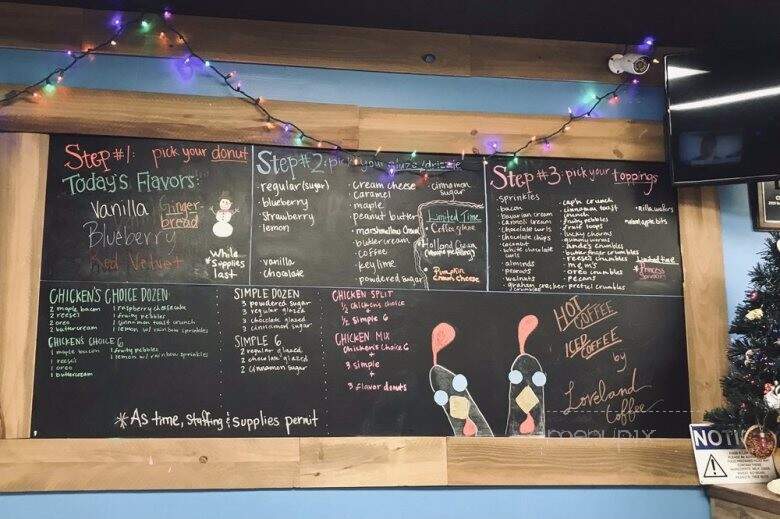 Step #1: pick your donut
Today's Flavors:
Vanilla
Ginger-
bread
Blueberry
Red Velvet
While
supplies
last
Step #2: pick your glaze/drizzle
regular (sugar)
blueberry
strawberry
lemon
vanilla
chocolate
cream cheese
caramel
maple
peanut butter
marshmallow cream
buttercream
coffee
key lime
powdered sugar
cinnamon
sugar
Limited Time
Coffee glaze
Holland Cream
Pumpkin
Cream cheese
Step #3: pick your toppings
sprinkles
bacon
bavarian cream
caramel curls
chocolate curls
chocolate chips
coconut
white chocolate
curls
almonds
peanuts
walnuts
graham cracker
crumbles
cap'n crunch
cinnamon toast
crunch
fruity pebbles
fruit loops
lucky charms
gummy worms
andes crumbles
butterfinger crumbles
reese's crumbles
m&m's
oreo crumbles
pecans
pretzel crumbles
nilla wafers
Limited time
Princess
CHICKEN'S CHOICE DOZEN
2 maple bacon
2 reese's
2 oreo
2 buttercream
1 raspberry cheesecake
2 fruity pebbles
1 cinnamon toast crunch
1 lemon w/ rainbow sprinkles
CHICKEN'S CHOICE 6
1 maple bacon
1 reese's
1 oreo
1 buttercream
1 fruity pebbles
1 lemon w/ rainbow sprinkles
SIMPLE DOZEN
3 powdered sugar
3 regular glazed
3 chocolate glazed
3 cinnamon sugar
SIMPLE 6
2 regular glazed
2 chocolate glazed
2 cinnamon sugar
CHICKEN SPLIT
1/2 chicken's choice
+
1/2 simple 6
CHICKEN MIX
Chicken's Choice 6
+
3 simple
+
3 flavor donuts
HOT
COFFEE
ICED
COFFEE
by
Loveland
Coffee
*As time, staffing & supplies permit
menupix
NOTI